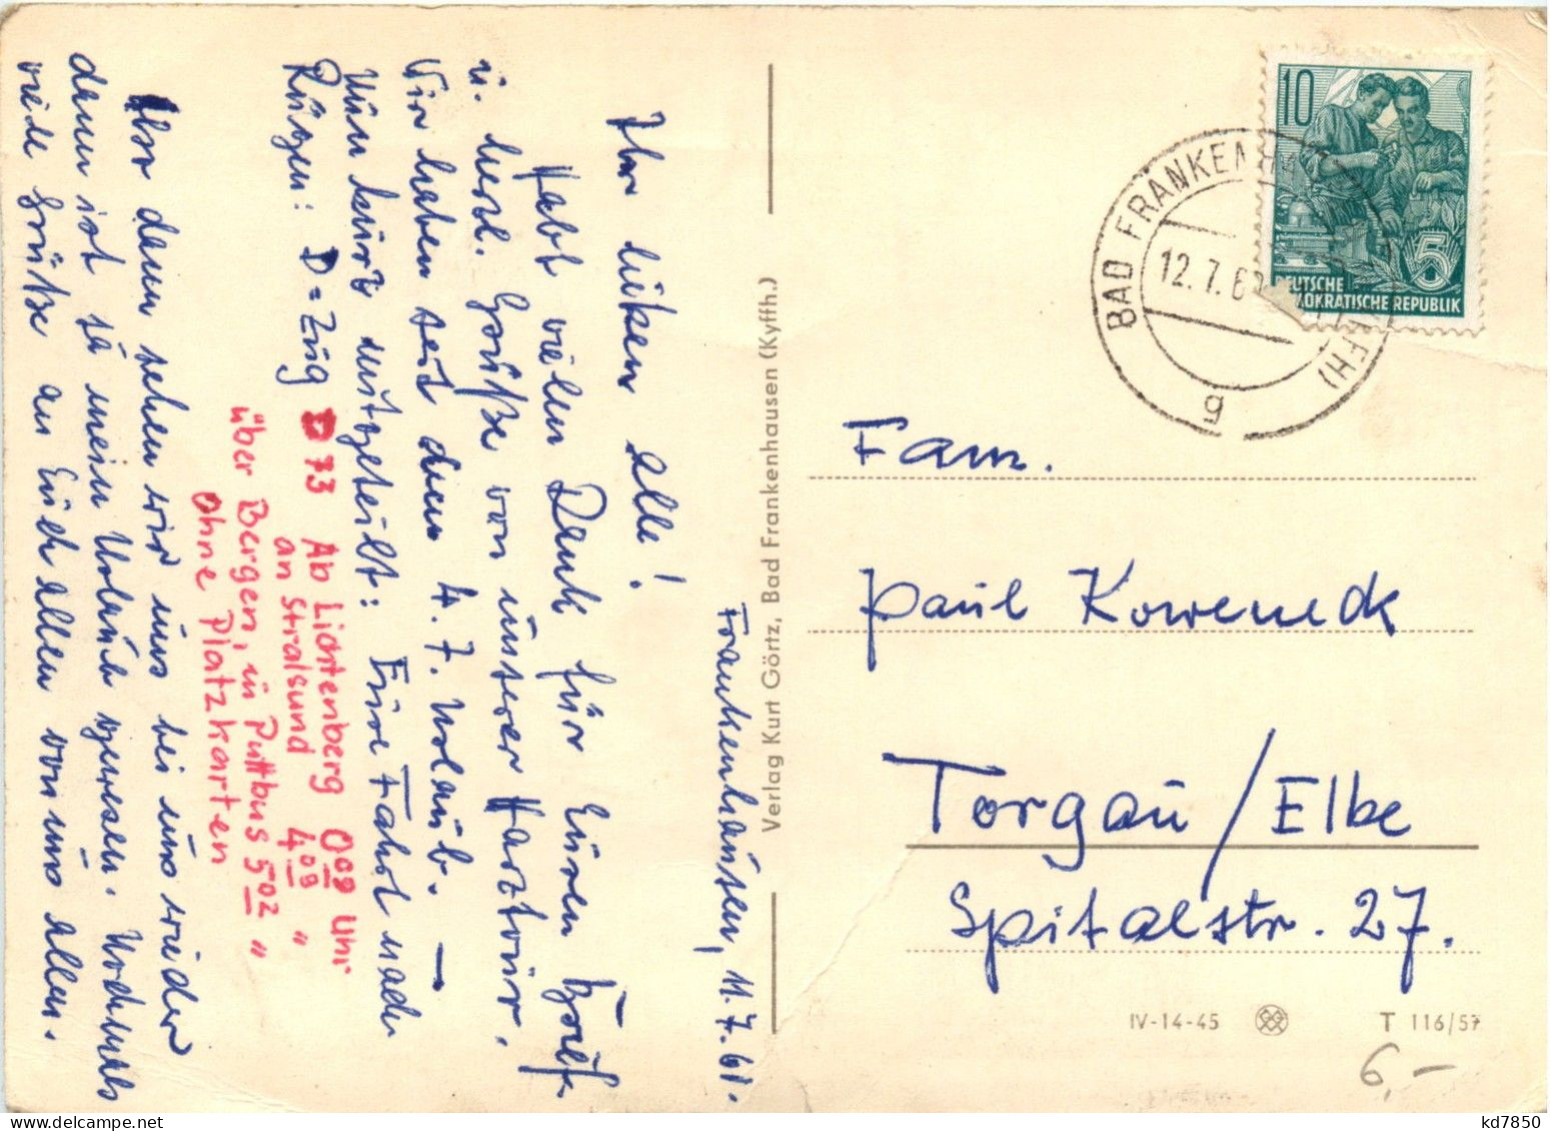 Frankenhausen, 11.7.61.
Ihr lieben alle!
Habt vielen Dank für Euren Brief
u. herzl. Grüße von unserer Harztour.
Wir haben seit dem 4.7. Urlaub. —
Nun kurz mitgeteilt: Eure Fahrt nach
Rügen: D=Zug D 73 Ab Lichtenberg 0 09 Uhr
an Stralsund 4 09 "
über Bergen, in Puttbus 5 02 "
Ohne Platzkarten
Also dann sehen wir uns bei uns wieder
dann ist ja mein Urlaub gewesen. Nochmals
viele Grüße an Euch allen von uns allen.
Verlag Kurt Görtz, Bad Frankenhausen (Kyffh.)
10
5
DEUTSCHE
DEMOKRATISCHE REPUBLIK
BAD FRANKENHAUSEN (KYFFH)
12.7.6
g
Fam.
Paul Koweneck
Torgau/Elbe
Spitalstr. 27.
IV-14-45 T 116/57
6,-
kd7850